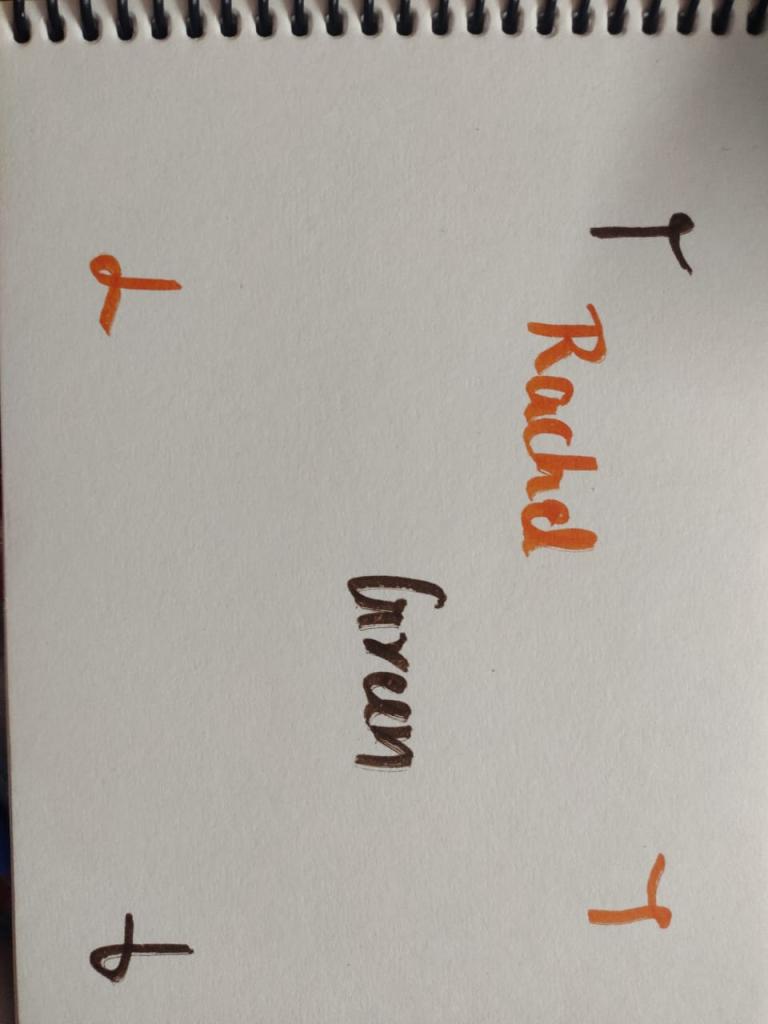 Rachel
Green